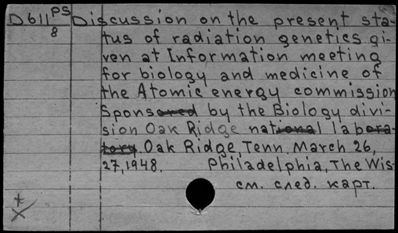 D611 PS Discussion on the present sta-
8 tus of radiation genetics gi-
ven at Information meeting
for biology and medicine of
the Atomic energy commission
Sponsored by the Biology divi-
sion Oak Ridge national labora-
tory. Oak Ridge, Tenn, March 26,
27, 1948. Philadelphia, The Wis-
см. след. карт.